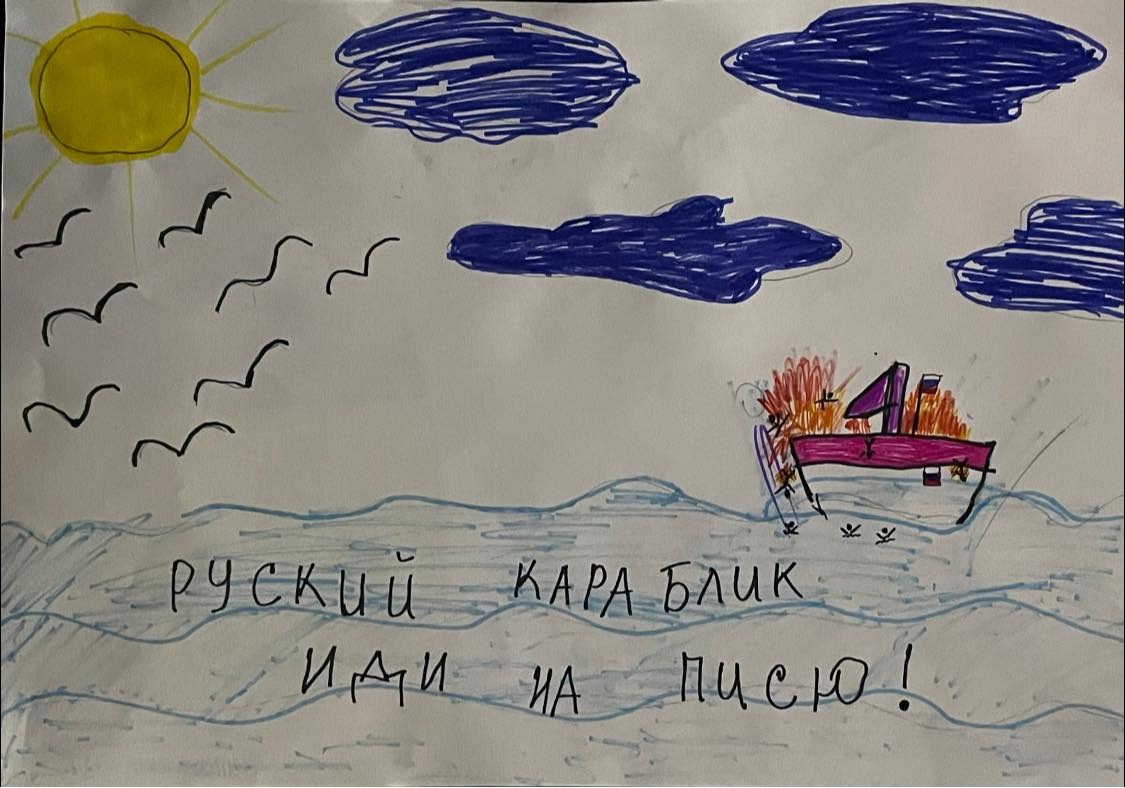 РУСКИЙ КАРАБЛИК
ИДИ НА ПИСЮ!